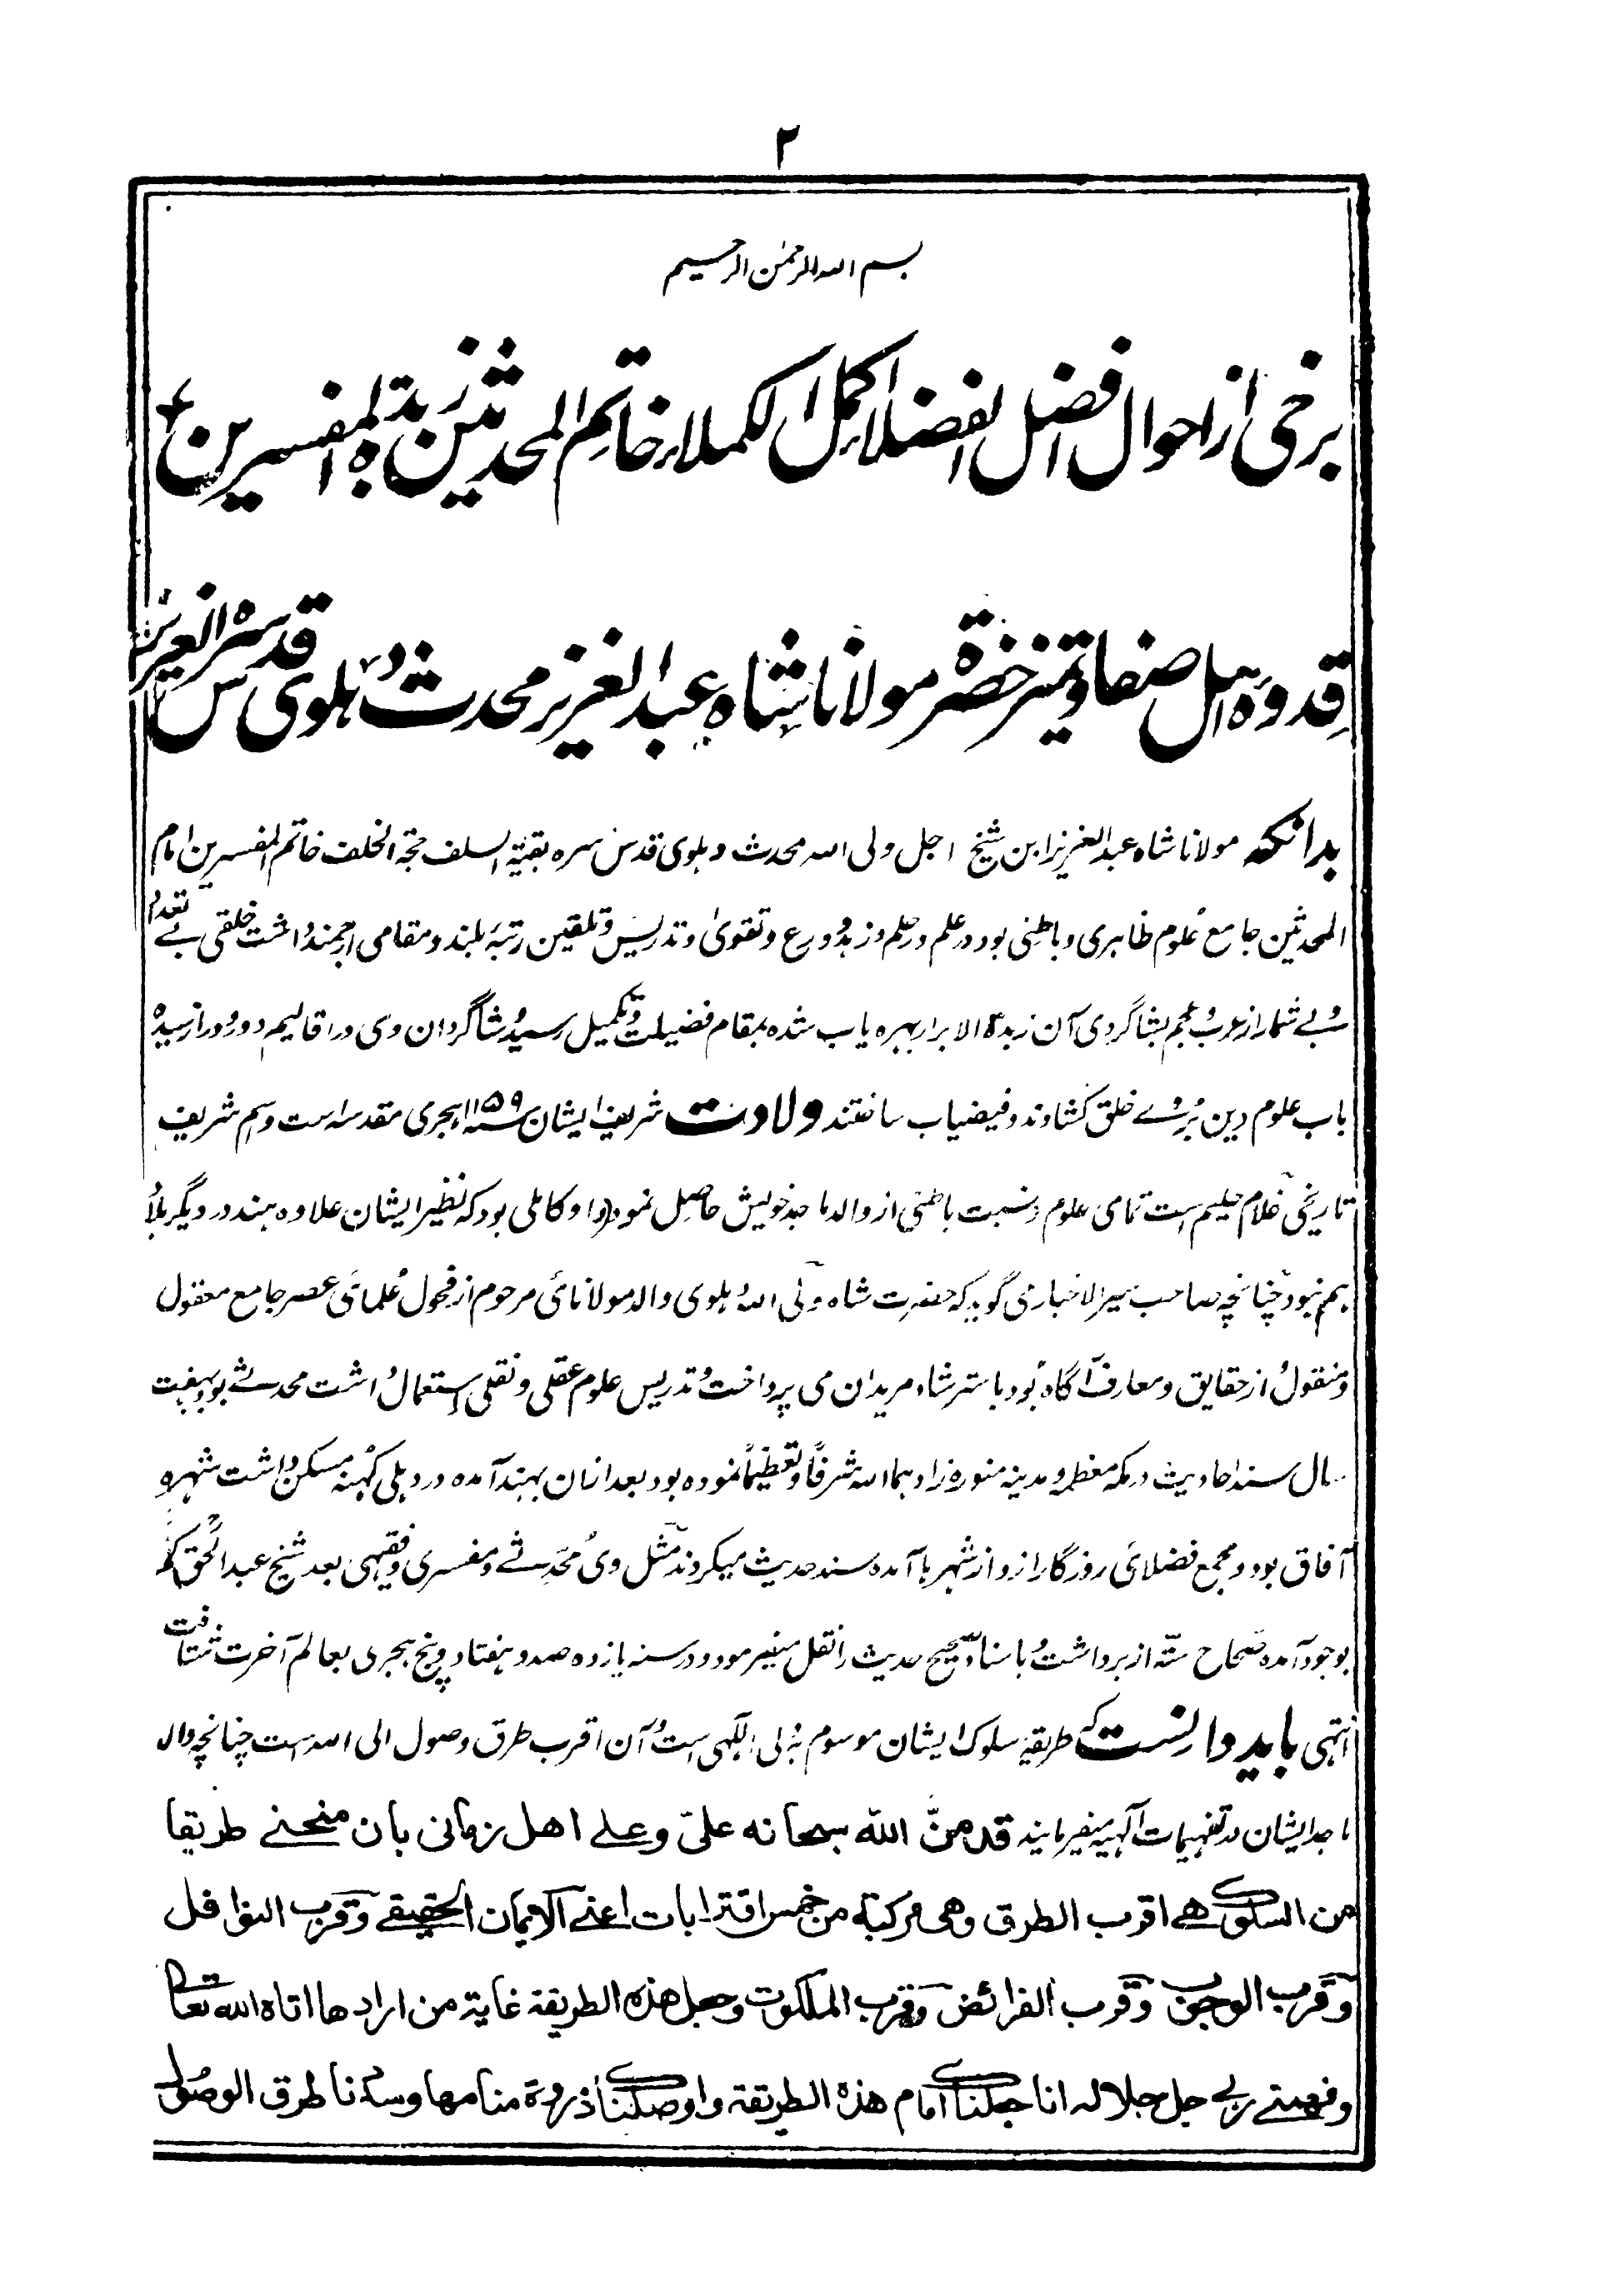 ۲
بسم الله الرحمن الرحیم
برخی از احوال افضل الفضلاء اکمل الکملاء خاتم المحدثین زبدة المفسرین
قدوه اهل صفا و تمیز حضرة مولانا شاه عبد العزیز محدث دهلوی قدس سره العزیز
بدانکه مولانا شاه عبد العزیز ابن شیخ اجل ولی الله محدث دهلوی قدس سره بقیة السلف حجة الخلف خاتم المفسرین امام
المحدثین جامع علوم ظاهری و باطنی بود در علم و حلم و زهد و ورع و تقوی و تدریس و تلقین رتبهٔ بلند و مقامی ارجمند داشت خلقی بے تعداد
و بے شمار از عرب و عجم بشاگردی آن زبدة الابرار بهره یاب شده بمقام فضیلت و تکمیل رسید و شاگردان وی در اقالیم دور دراز رسیده
باب علوم دین بر روے خلق کشادند و فیضیاب ساختند ولادت شریف ایشان سنه ۱۱۵۹ هجری مقدسه است و اسم شریف
تاریخی غلام حلیم است تمامی علوم و نسبت باطنی از والد ماجد خویش حاصل نمود و او کاملی بود که نظیر ایشان علاوه هند در دیگر بلاد
هم نبود چنانچه صاحب سیر الاخبار می گوید که حضرت شاه ولی الله دهلوی والد مولانائ مرحوم از فحول علمائ عصر جامع معقول
و منقول و از حقایق و معارف آگاه بود باسترشاد مریدان می پرداخت و تدریس علوم عقلی و نقلی استعمال داشت محدثے بود بهفت
سال سند احادیث در مکه معظمه و مدینه منوره زادهما الله شرفاً و تعظیماً نموده بود بعد ازان بهند آمده در دهلی کهنه مسکن داشت شهره
آفاق بود و مجمع فضلائ روزگار ازو از شهرها آمده سند حدیث میکردند مثل وی محدثے و مفسری و فقیهی بعد شیخ عبد الحق کم
بوجود آمده صحاح سته از بر داشت و باسناد صحیح حدیث را نقل میفرمود و در سنه یازده صد و هفتاد و پنج هجری بعالم آخرت شتافت
انتهی باید دانست که طریقهٔ سلوک ایشان موسوم به ولی اللهی است و آن اقرب طرق وصول الی الله است چنانچه والد
ماجد ایشان در تفهیمات آلهیه میفرمایند قد من الله سبحانه علیّ وعلے اهل زمانی بان منحنے طریقا
من السلوک هے اقرب الطرق وهی مرکبة من خمس اقترابات اعنے الایمان الحقیقے وقرب النوافل
وقرب الوجوب وقرب الفرائض وقرب الملکوت وجعل هذه الطریقة غایة من ارادها اتاه الله تعالی
وفهمنے ربے جل جلاله انا جعلناک امام هذه الطریقة واوصلناک ذروة سنامها وسددنا طرق الوصول